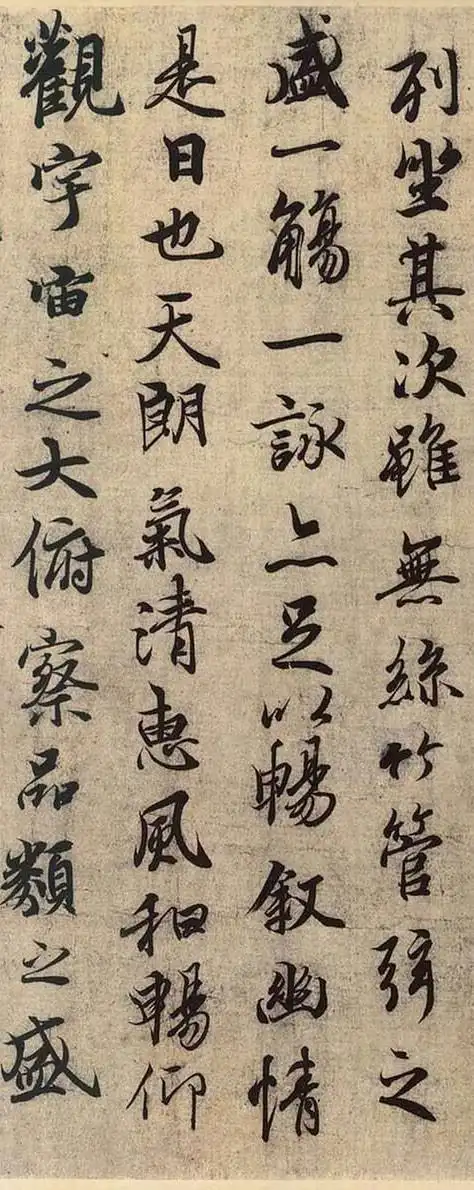 列坐其次雖無絲竹管弦之
盛一觴一詠亦足以暢敘幽情
是日也天朗氣清惠風和暢仰
觀宇宙之大俯察品類之盛